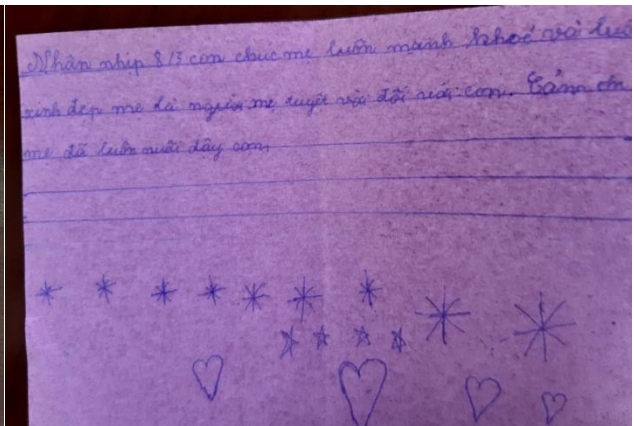 Nhân nhịp 8/3 con chúc mẹ luôn mạnh khoẻ và luô
xinh đẹp mẹ là người mẹ tuyệt vời đối với con. Cảm ơn
mẹ đã luôn nuôi dậy con,